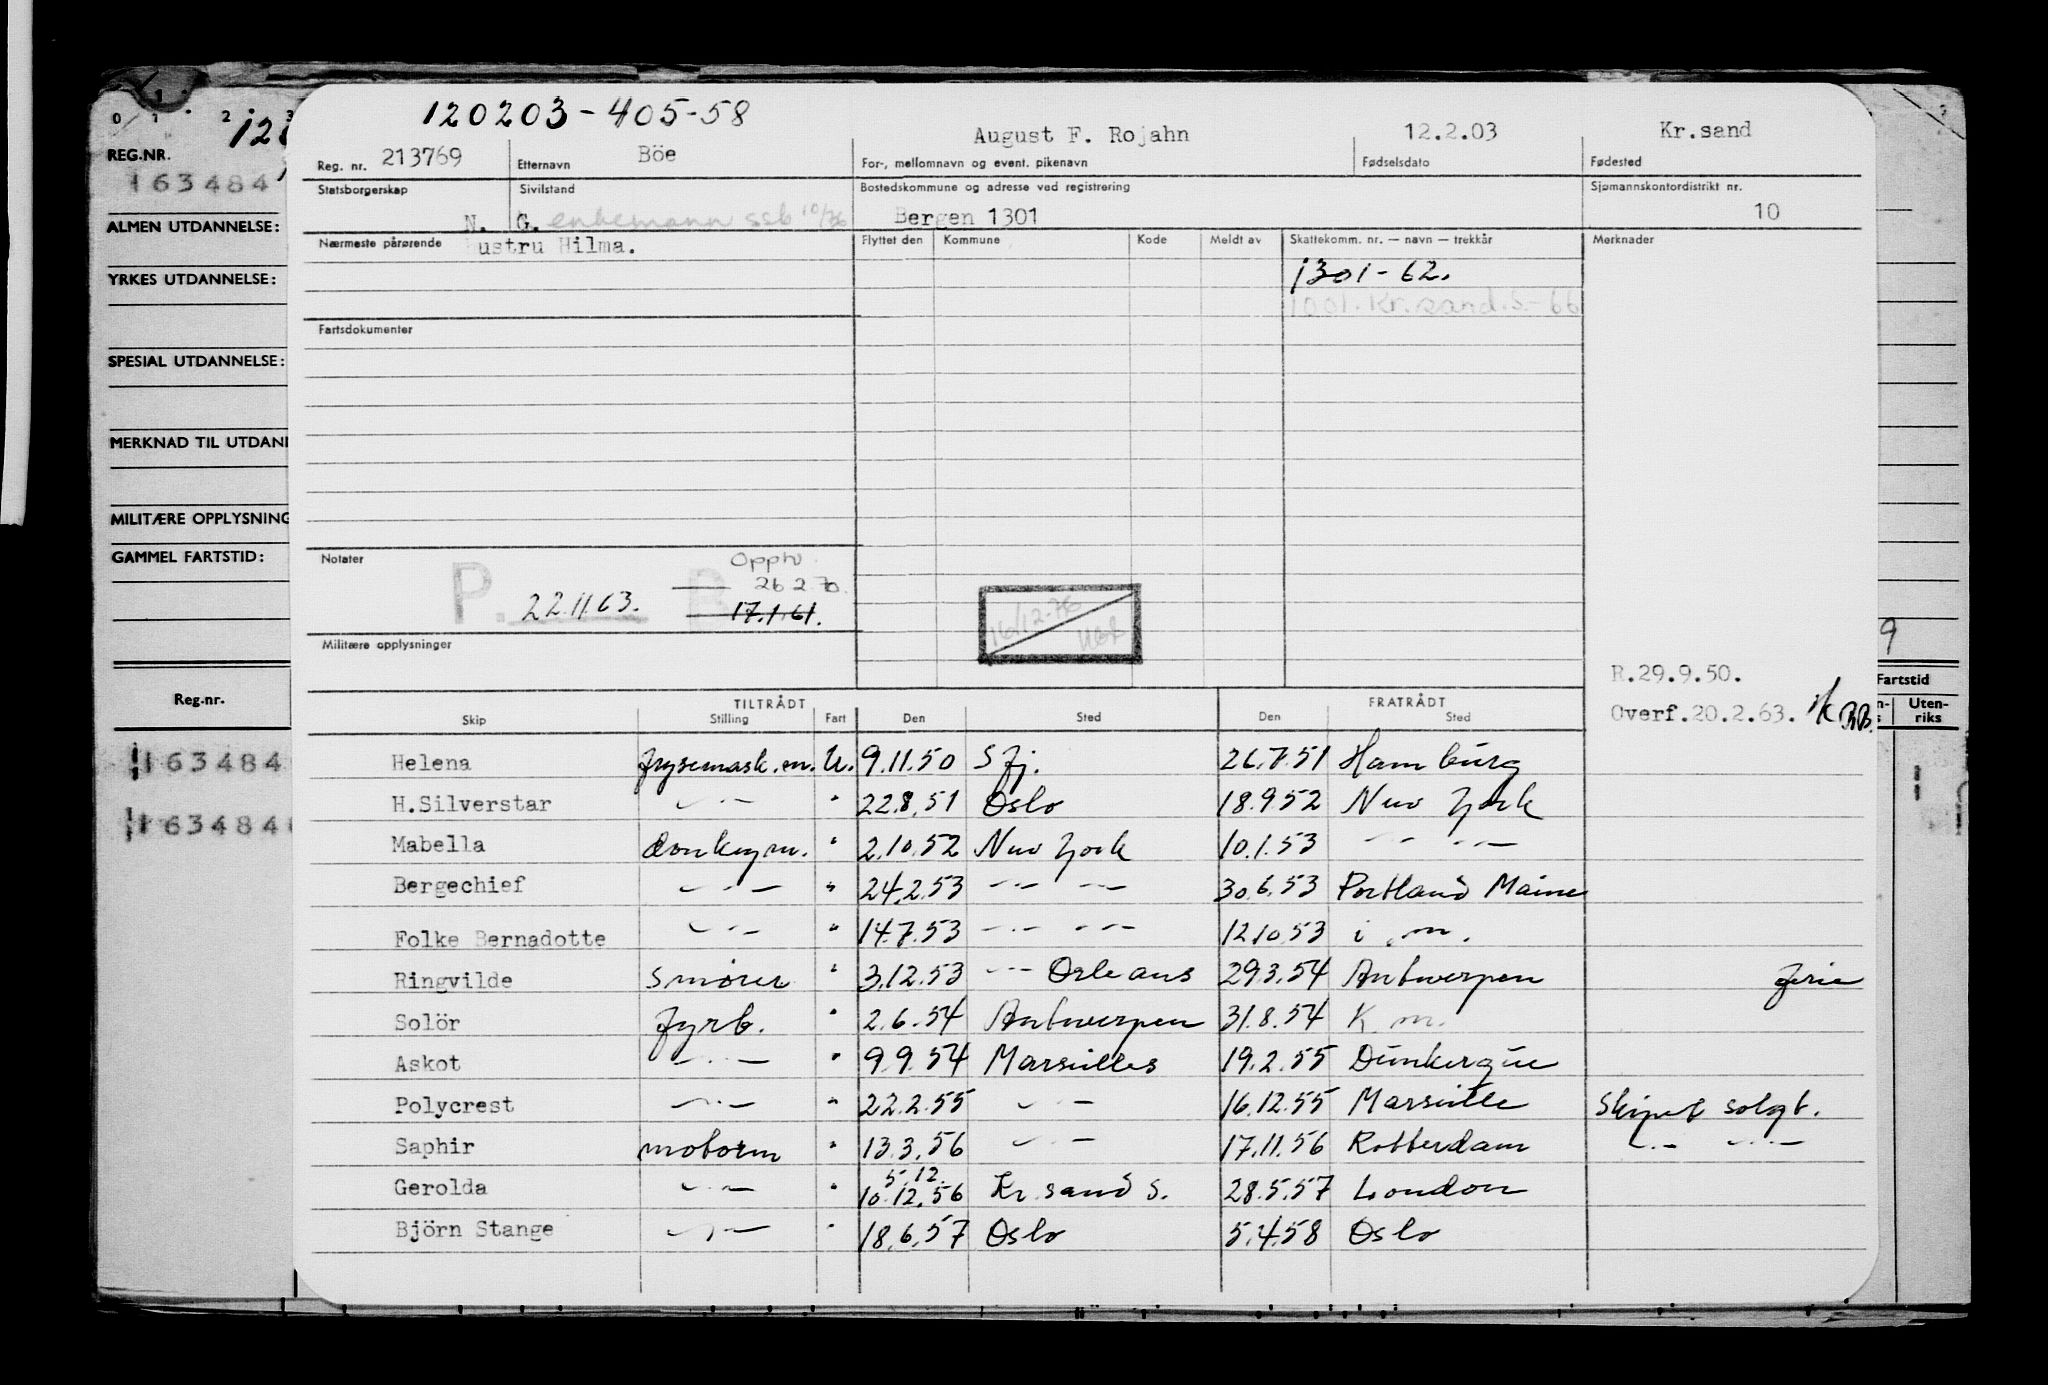 120203-405-58
Reg. nr. 213769 Etternavn Böe For-, mellomnavn og event. pikenavn August F. Rojahn Fødselsdato 12.2.03 Fødested Kr.sand
Statsborgerskap N. Sivilstand G. enkemann ssb 10/76 Bostedskommune og adresse ved registrering Bergen 1301 Sjømannskontordistrikt nr. 10
Nærmeste pårørende ustru Hilma. Flyttet den Kommune Kode Meldt av Skattekomm. nr. — navn — trekkår Merknader
1301-62.
1001. Kr.sand.S-66
Fartsdokumenter
Notater
P. 22.11.63. B Opphv. 26 2 70. 17.1.61.
16/12-76
Militære opplysninger
R.29.9.50.
Overf.20.2.63.
TILTRÅDT FRATRÅDT
Skip Stilling Fart Den Sted Den Sted
Helena frysemask.m. U. 9.11.50 S fj. 26.7.51 Hamburg
H.Silverstar — " — " 22.8.51 Oslo 18.9.52 New York
Mabella donkeym. " 2.10.52 New York 10.1.53 — " — — " —
Bergechief — " — " 24.2.53 — " — — " — 30.6.53 Portland Maine
Folke Bernadotte — " — " 14.7.53 — " — — " — 12.10.53 i.m.
Ringvilde Smører " 3.12.53 — " — Orleans 29.3.54 Antwerpen ferie
Solör fyrb. " 2.6.54 Antwerpen 31.8.54 K.m.
Askot — " — " 9.9.54 Marseilles 19.2.55 Dünkerque
Polycrest — " — " 22.2.55 — " — 16.12.55 Marseille Skipet solgt.
Saphir motorm " 13.3.56 — " — 17.11.56 Rotterdam — " — — " —
Gerolda — " — " 5.12. 10.12.56 Kr.sand S. 28.5.57 London
Björn Stange — " — " 18.6.57 Oslo 5.4.58 Oslo
0 1 2 3
REG.NR.
163484
ALMEN UTDANNELSE:
YRKES UTDANNELSE:
SPESIAL UTDANNELSE:
MERKNAD TIL UTDAN
MILITÆRE OPPLYSNING
GAMMEL FARTSTID:
Reg.nr.
163484
163484
9
Fartstid
Uten-
riks